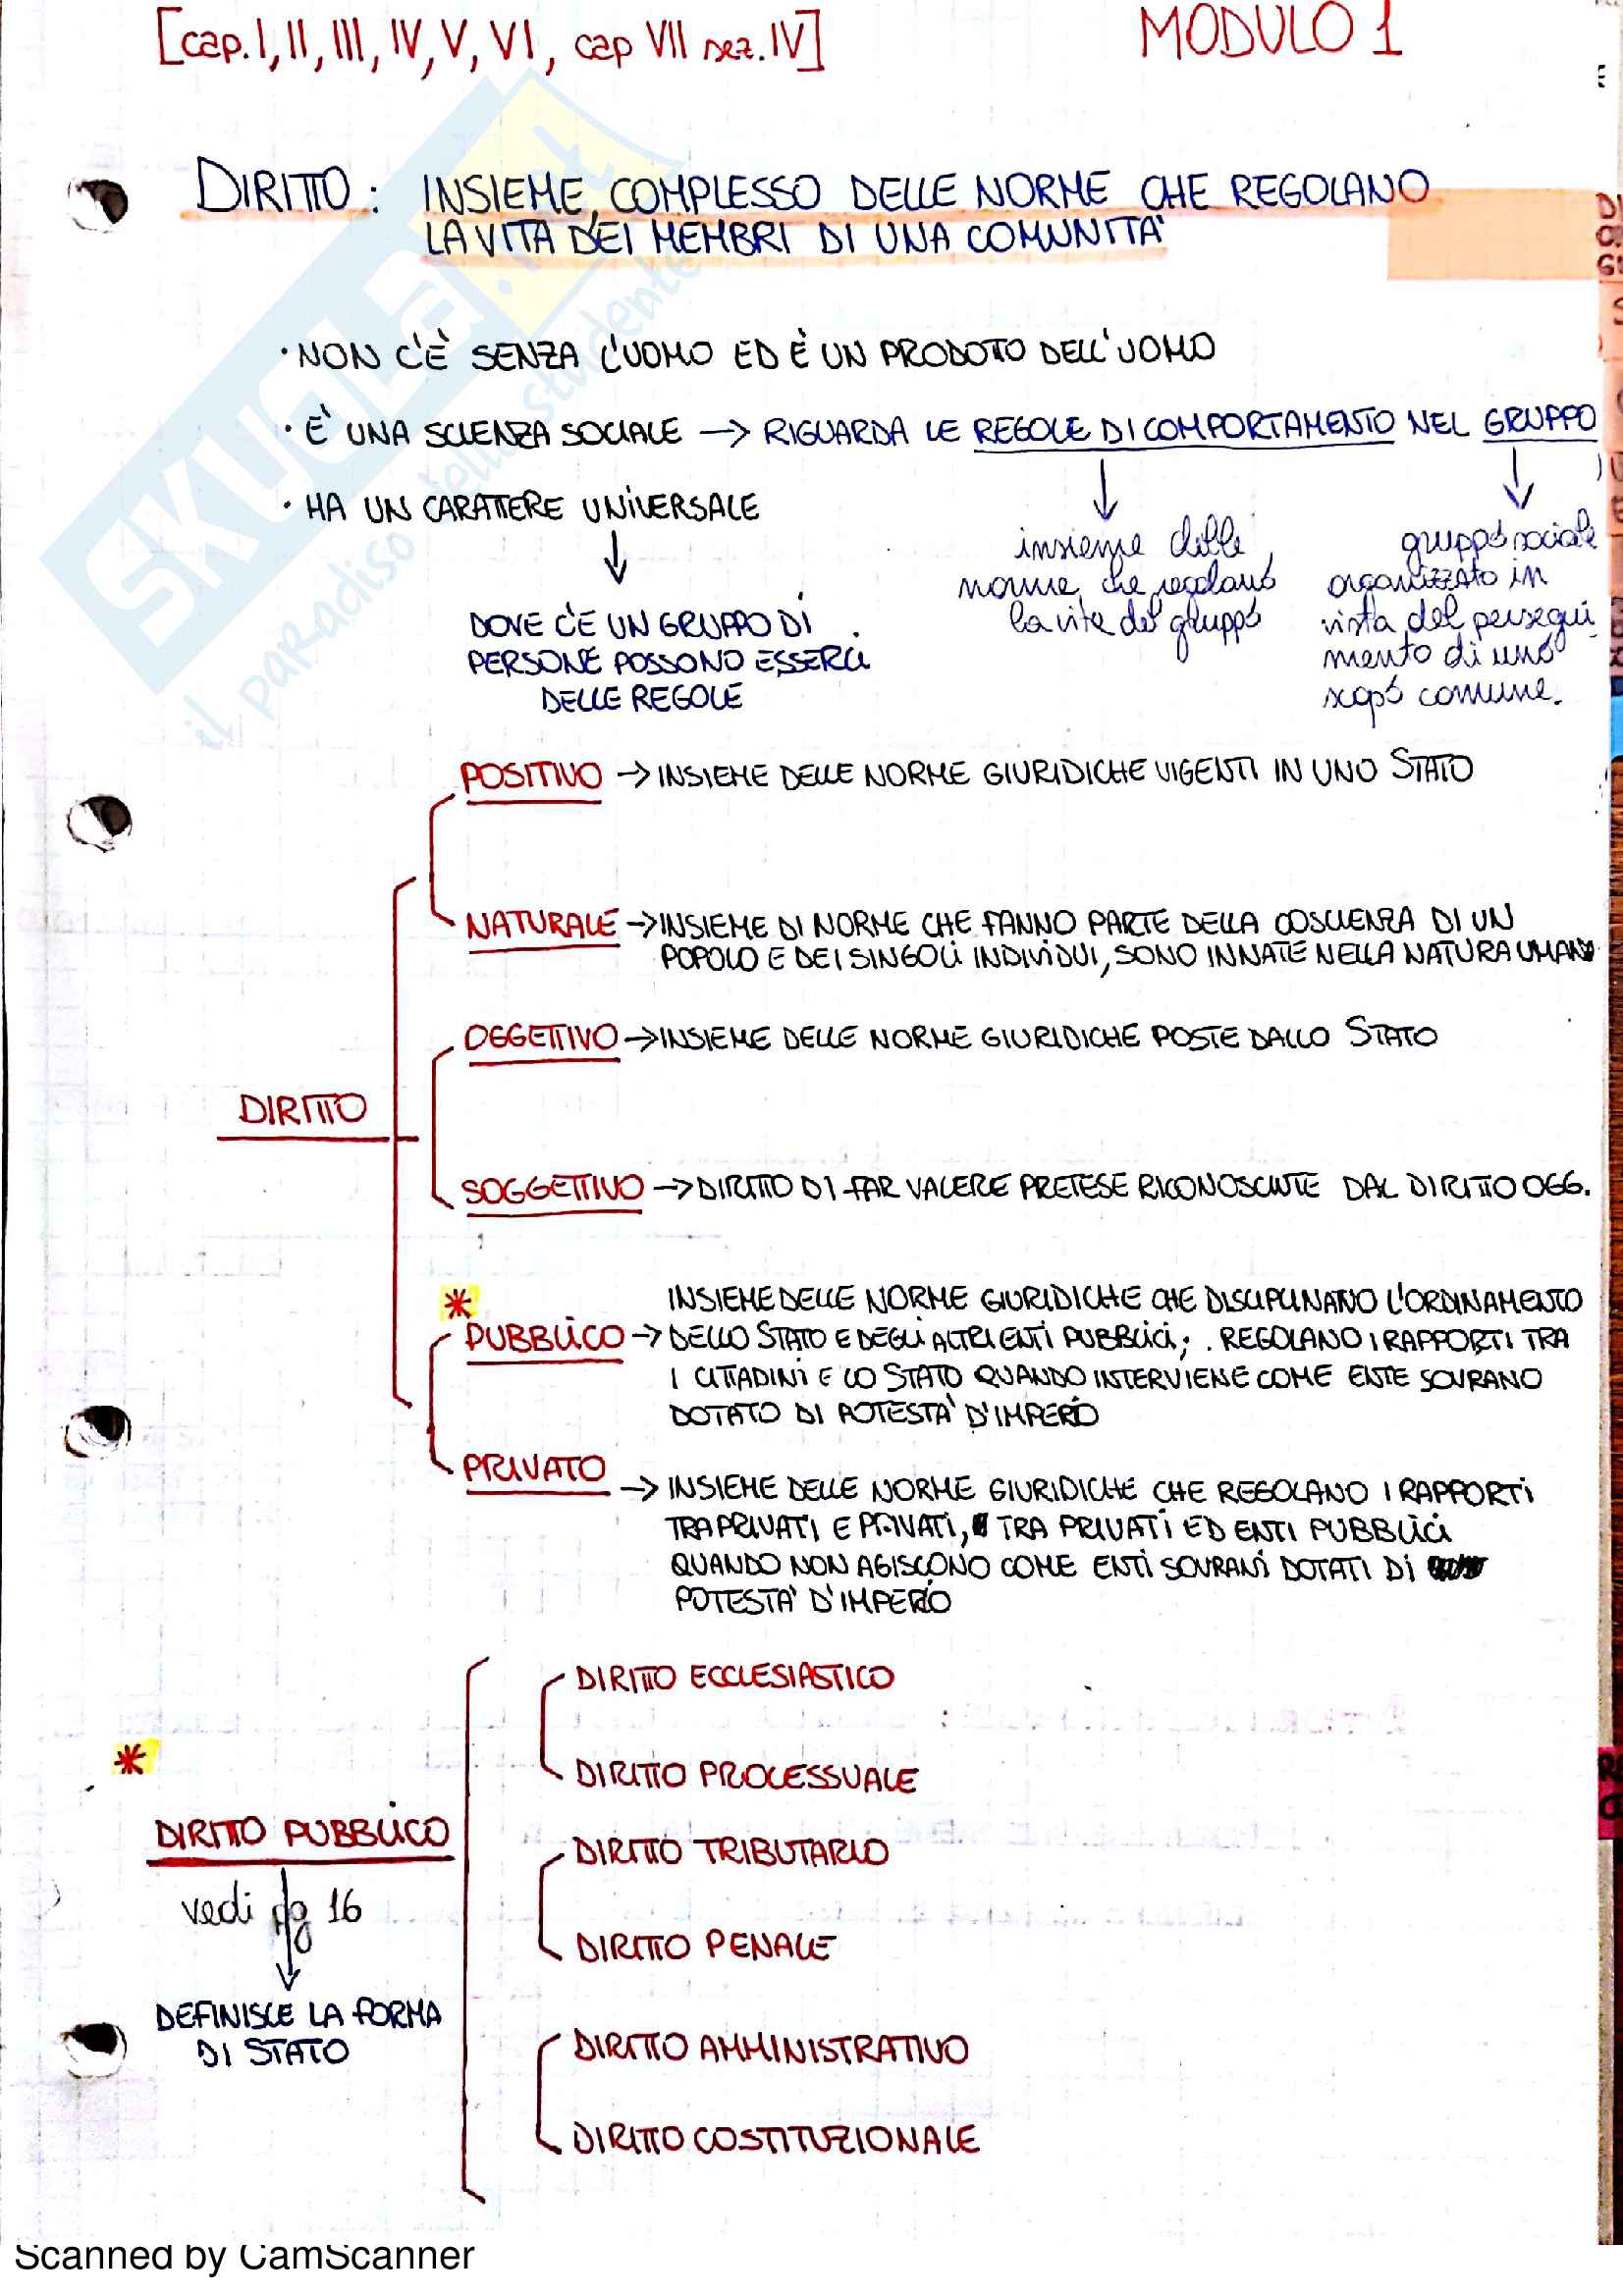 [cap. I, II, III, IV, V, VI, cap VII sez. IV]
MODULO 1
DIRITTO: INSIEME COMPLESSO DELLE NORME CHE REGOLANO
LA VITA DEI MEMBRI DI UNA COMUNITA'
· NON C'È SENZA L'UOMO ED È UN PRODOTTO DELL'UOMO
· È UNA SCIENZA SOCIALE → RIGUARDA LE REGOLE DI COMPORTAMENTO NEL GRUPPO
· HA UN CARATTERE UNIVERSALE
DOVE C'È UN GRUPPO DI
PERSONE POSSONO ESSERCI
DELLE REGOLE
insieme delle
norme che regolano
la vita del gruppo
gruppo sociale
organizzato in
vista del persegui
mento di uno
scopo comune.
SKUOLA.net
il paradiso dello studente
DIRITTO
POSITIVO → INSIEME DELLE NORME GIURIDICHE VIGENTI IN UNO STATO
NATURALE → INSIEME DI NORME CHE FANNO PARTE DELLA COSCIENZA DI UN
POPOLO E DEI SINGOLI INDIVIDUI, SONO INNATE NELLA NATURA UMANA
OGGETTIVO → INSIEME DELLE NORME GIURIDICHE POSTE DALLO STATO
SOGGETTIVO → DIRITTO DI FAR VALERE PRETESE RICONOSCIUTE DAL DIRITTO OGG.
*
PUBBLICO → INSIEME DELLE NORME GIURIDICHE CHE DISCIPLINANO L'ORDINAMENTO
DELLO STATO E DEGLI ALTRI ENTI PUBBLICI; REGOLANO I RAPPORTI TRA
I CITTADINI E LO STATO QUANDO INTERVIENE COME ENTE SOVRANO
DOTATO DI POTESTA' D'IMPERIO
PRIVATO → INSIEME DELLE NORME GIURIDICHE CHE REGOLANO I RAPPORTI
TRA PRIVATI E PRIVATI, TRA PRIVATI ED ENTI PUBBLICI
QUANDO NON AGISCONO COME ENTI SOVRANI DOTATI DI
POTESTA' D'IMPERIO
*
DIRITTO PUBBLICO
vedi pg 16
DEFINISCE LA FORMA
DI STATO
DIRITTO ECCLESIASTICO
DIRITTO PROCESSUALE
DIRITTO TRIBUTARIO
DIRITTO PENALE
DIRITTO AMMINISTRATIVO
DIRITTO COSTITUZIONALE
Scanned by CamScanner